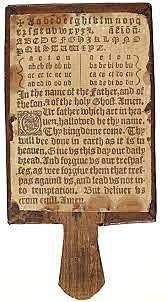 + A a b c d e f g h i k l m n o p q
r s t u v w x y z
a e i o u
A B C D E F G H I K L M N O P Q
R S T U W X Y Z
a e i o u
a e i o u
ab eb ib ob ub
ba be bi bo bu
ac ec ic oc uc
ca ce ci co cu
ad ed id od ud
da de di do du
In the name of the Father, and of
the Son, & of the holy Ghost. Amen.
Our father which art in hea-
uen, hallowed be thy name.
Thy kingdome come. Thy
will bee done in earth as it is in
heauen. Giue vs this day our daily
bread. And forgiue vs our trespas-
ses, as wee forgiue them that tres-
pas against vs, and lead vs not in-
to temptation. But deliuer vs
from euill. Amen.